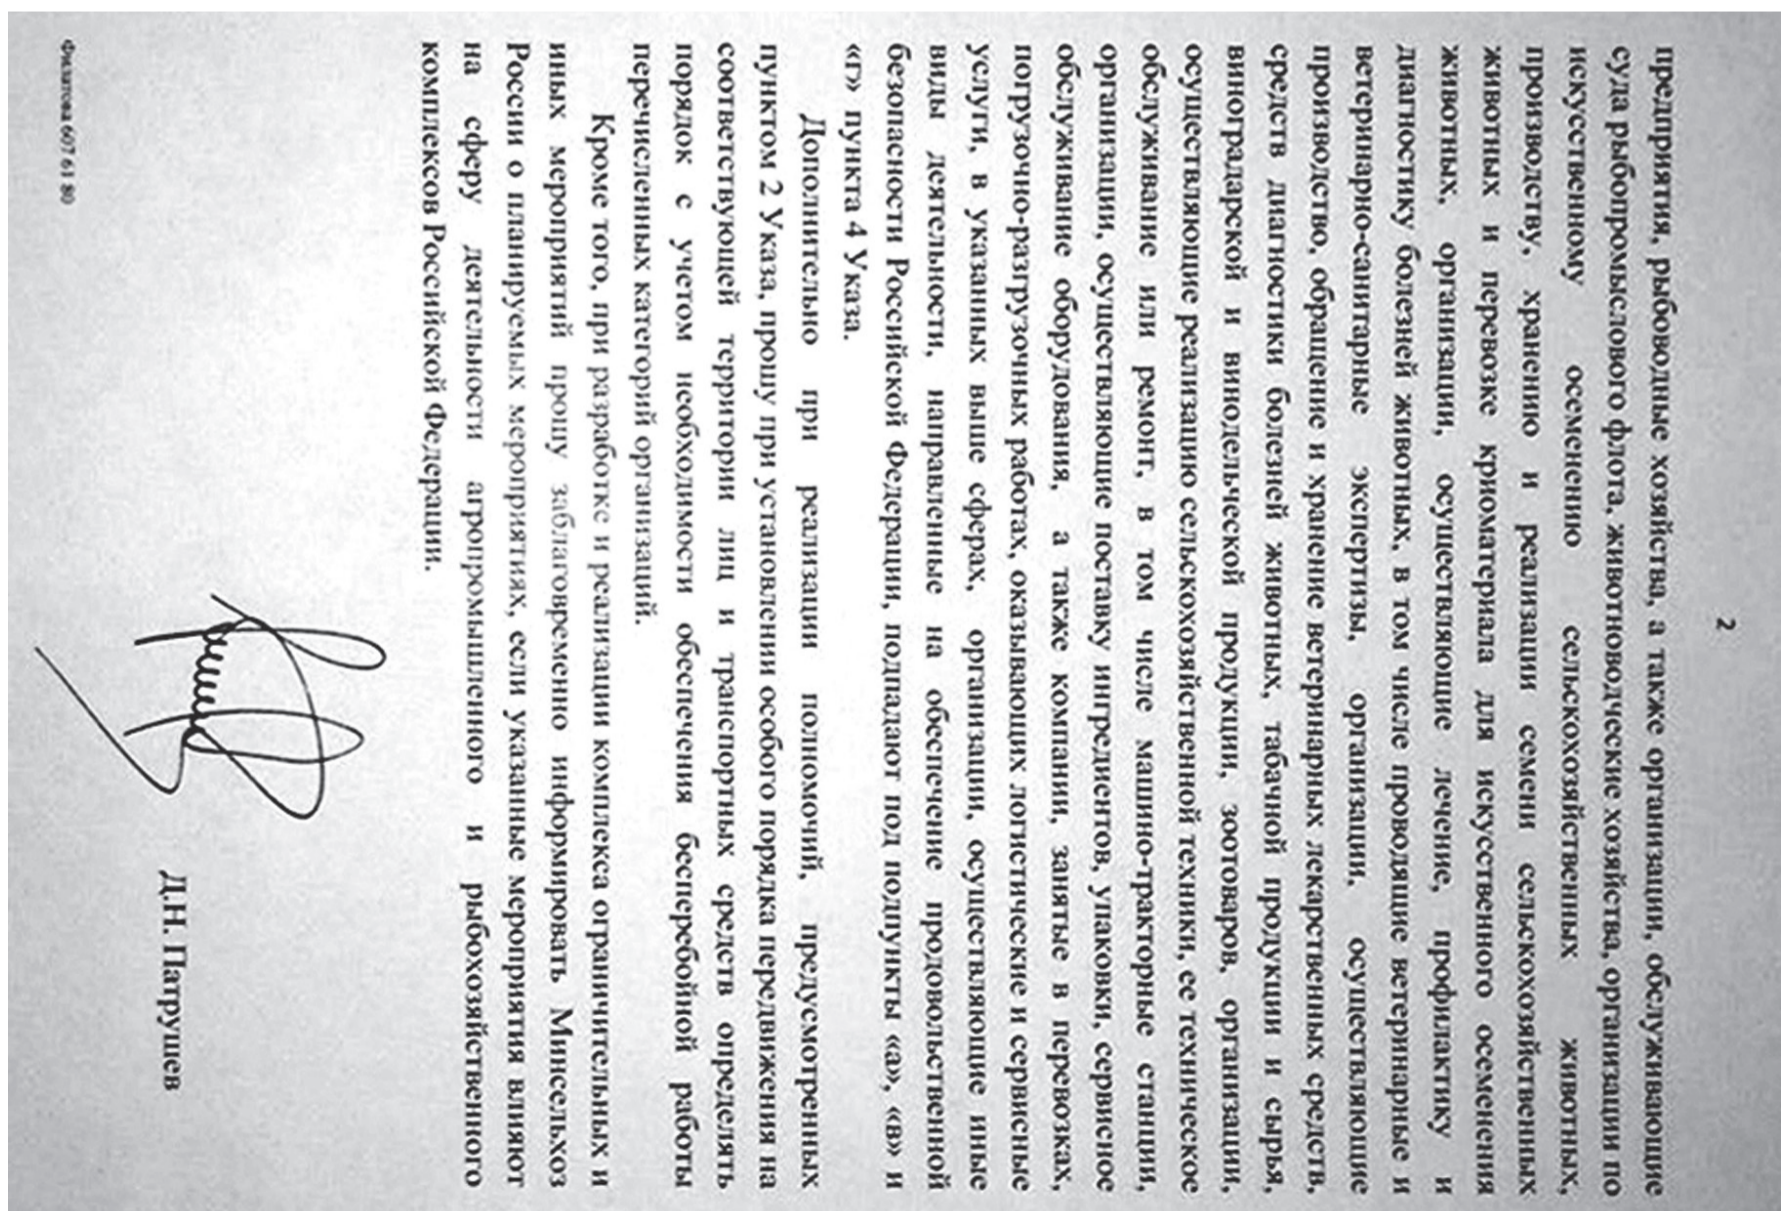 2
предприятия, рыбоводные хозяйства, а также организации, обслуживающие
суда рыбопромыслового флота, животноводческие хозяйства, организации по
искусственному осеменению сельскохозяйственных животных,
производству, хранению и реализации семени сельскохозяйственных
животных и перевозке криоматериала для искусственного осеменения
животных, организации, осуществляющие лечение, профилактику и
диагностику болезней животных, в том числе проводящие ветеринарные и
ветеринарно-санитарные экспертизы, организации, осуществляющие
производство, обращение и хранение ветеринарных лекарственных средств,
средств диагностики болезней животных, табачной продукции и сырья,
виноградарской и винодельческой продукции, зоотоваров, организации,
осуществляющие реализацию сельскохозяйственной техники, ее техническое
обслуживание или ремонт, в том числе машино-тракторные станции,
организации, осуществляющие поставку ингредиентов, упаковки, сервисное
обслуживание оборудования, а также компании, занятые в перевозках,
погрузочно-разгрузочных работах, оказывающих логистические и сервисные
услуги, в указанных выше сферах, организации, осуществляющие иные
виды деятельности, направленные на обеспечение продовольственной
безопасности Российской Федерации, подпадают под подпункты «а», «в» и
«г» пункта 4 Указа.
Дополнительно при реализации полномочий, предусмотренных
пунктом 2 Указа, прошу при установлении особого порядка передвижения на
соответствующей территории лиц и транспортных средств определять
порядок с учетом необходимости обеспечения бесперебойной работы
перечисленных категорий организаций.
Кроме того, при разработке и реализации комплекса ограничительных и
иных мероприятий прошу заблаговременно информировать Минсельхоз
России о планируемых мероприятиях, если указанные мероприятия влияют
на сферу деятельности агропромышленного и рыбохозяйственного
комплексов Российской Федерации.
Д.Н. Патрушев
Филатова 607 61 80